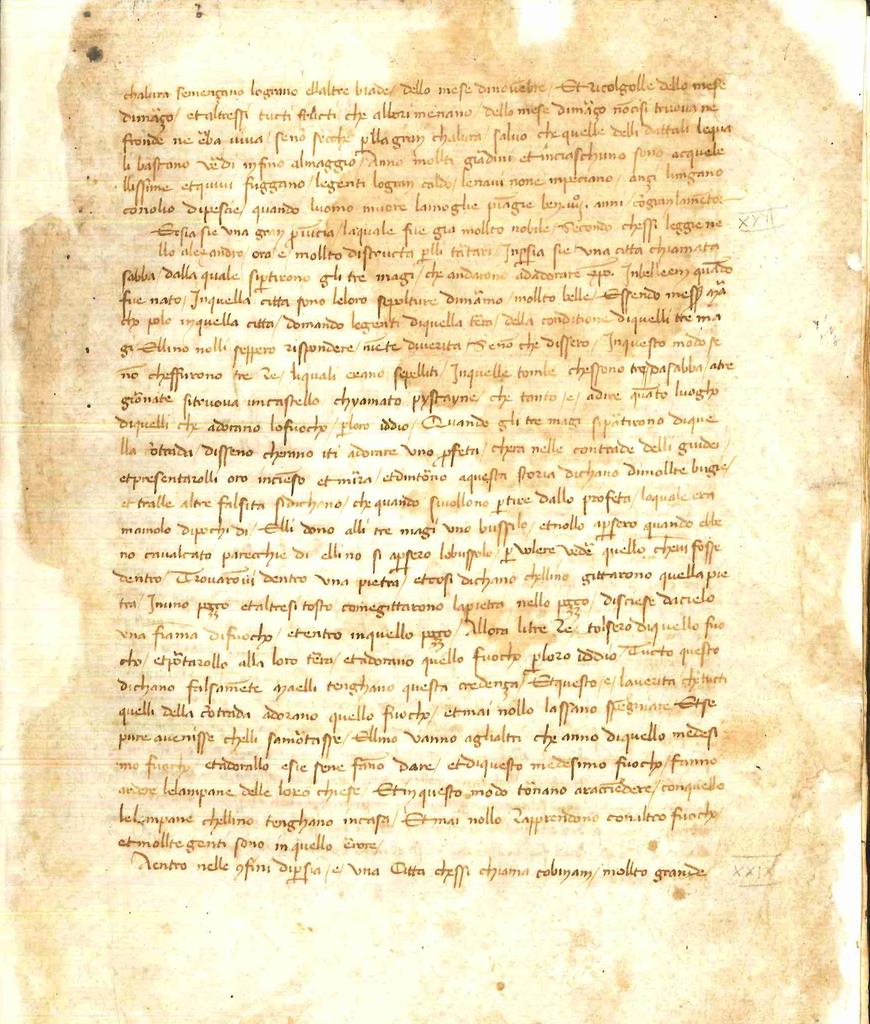 chalura semenzano lograno ellaltre biade / dello mese dinovēbre / Et ricolgolle dello mese
dimarzo / et altressi tucti frūcti che allori menano / dello mese dimarzo nōcisi truova ne
fronde ne erba viva / senō secche plla gran chalura / salvo che quelle delli dattali lequa
li bastano verdi infino almaggio / Anno molti
llissime et quivi fuggano / le genti lo gran caldo / lenavi none inpeciano / anzi lungano
conolio dipescie / quando luomo muore la moglie piagie ben anni cōtinuamēte
Persia sie una gran pvincia / laquale fue gia mollto nobile / Secondo chessi leggie ne
llo alexandro / ora e mollto distructa plli tātari / Inpsia sie una citta chiamata
sabba / dalla quale siptirono gli tre magi / che andarono adadorare xpo. Inbelleem quādo
fue nato / Inquella citta sono leloro sepolture dimarmo mollto belle / Essendo mess mar
cho polo inquella citta / domando legenti diquella tera / della conditione diquelli tre ma
gi Ellino nolli seppero rispondere / niēte diverita Senō che dissero / Inquesto mōdo se
nō cheffurono tre Re / liquali erano sepelliti / Inquelle tombe chessono tre / da sabba / a tre
giōnate sitruova uncastello chyamato pystayne / che tanto / e / adire quāto luogho
diquelli che adorano lofuocho / ploro iddio / Quando gli tre magi sipātirono dique
lla cōtrada / disseno cherano iti adorare uno pfeta / chera nelle contrade delli giudei /
etpresentarolli oro incenso et mirra / et dintōno aquesta storia dichano dimollte bugie /
et tralle altre falsita sidichono / che quando si vollono ptire dallo profeta / laquale era
mamolo dipochi di / Elli dono alli tre magi uno bussilo / et nollo apsero quando ebbe
no cavalcato parecchie di ellino si apsero lobussolo / p volere vedē quello chevi fosse
dentro / Trovarovi dentro una pietra / et cosi dichano chellino gittarono quella pie
tra / Inuno pozzo et altresi tosto come gittarono la pietra nello pozzo / discese da cielo
una fiama di fuocho / et entro in quello pozzo / Allora li tre Re / tolsero di quello fuo
cho / et pōtarollo alla loro tera / et adorano quello fuocho ploro iddio Tucto questo
dichano falsamēte ma elli tenghano questa credenza / Et questo / e / la verita che tucti
quelli della cōtrada adorano quello fuocho / et mai nollo lassano spegnare Et se
pure avenisse chelli samōtasse / Ellino vanno agli altri che anno di quello medesi
mo fuocho et adorallo esie sene fano dare / et di questo medesimo fuocho / fanno
ardere le lampane delle loro chiese / Et in questo modo tōnano araccendere / con quello
lelampane chellino tenghano incasa / Et mai nollo rapprendono conaltro fuocho
et mollte genti sono in quello erore /
Dentro nelle 9fini dipsia / e / una Citta chessi chiama cobinam / mollto grande
XXIX